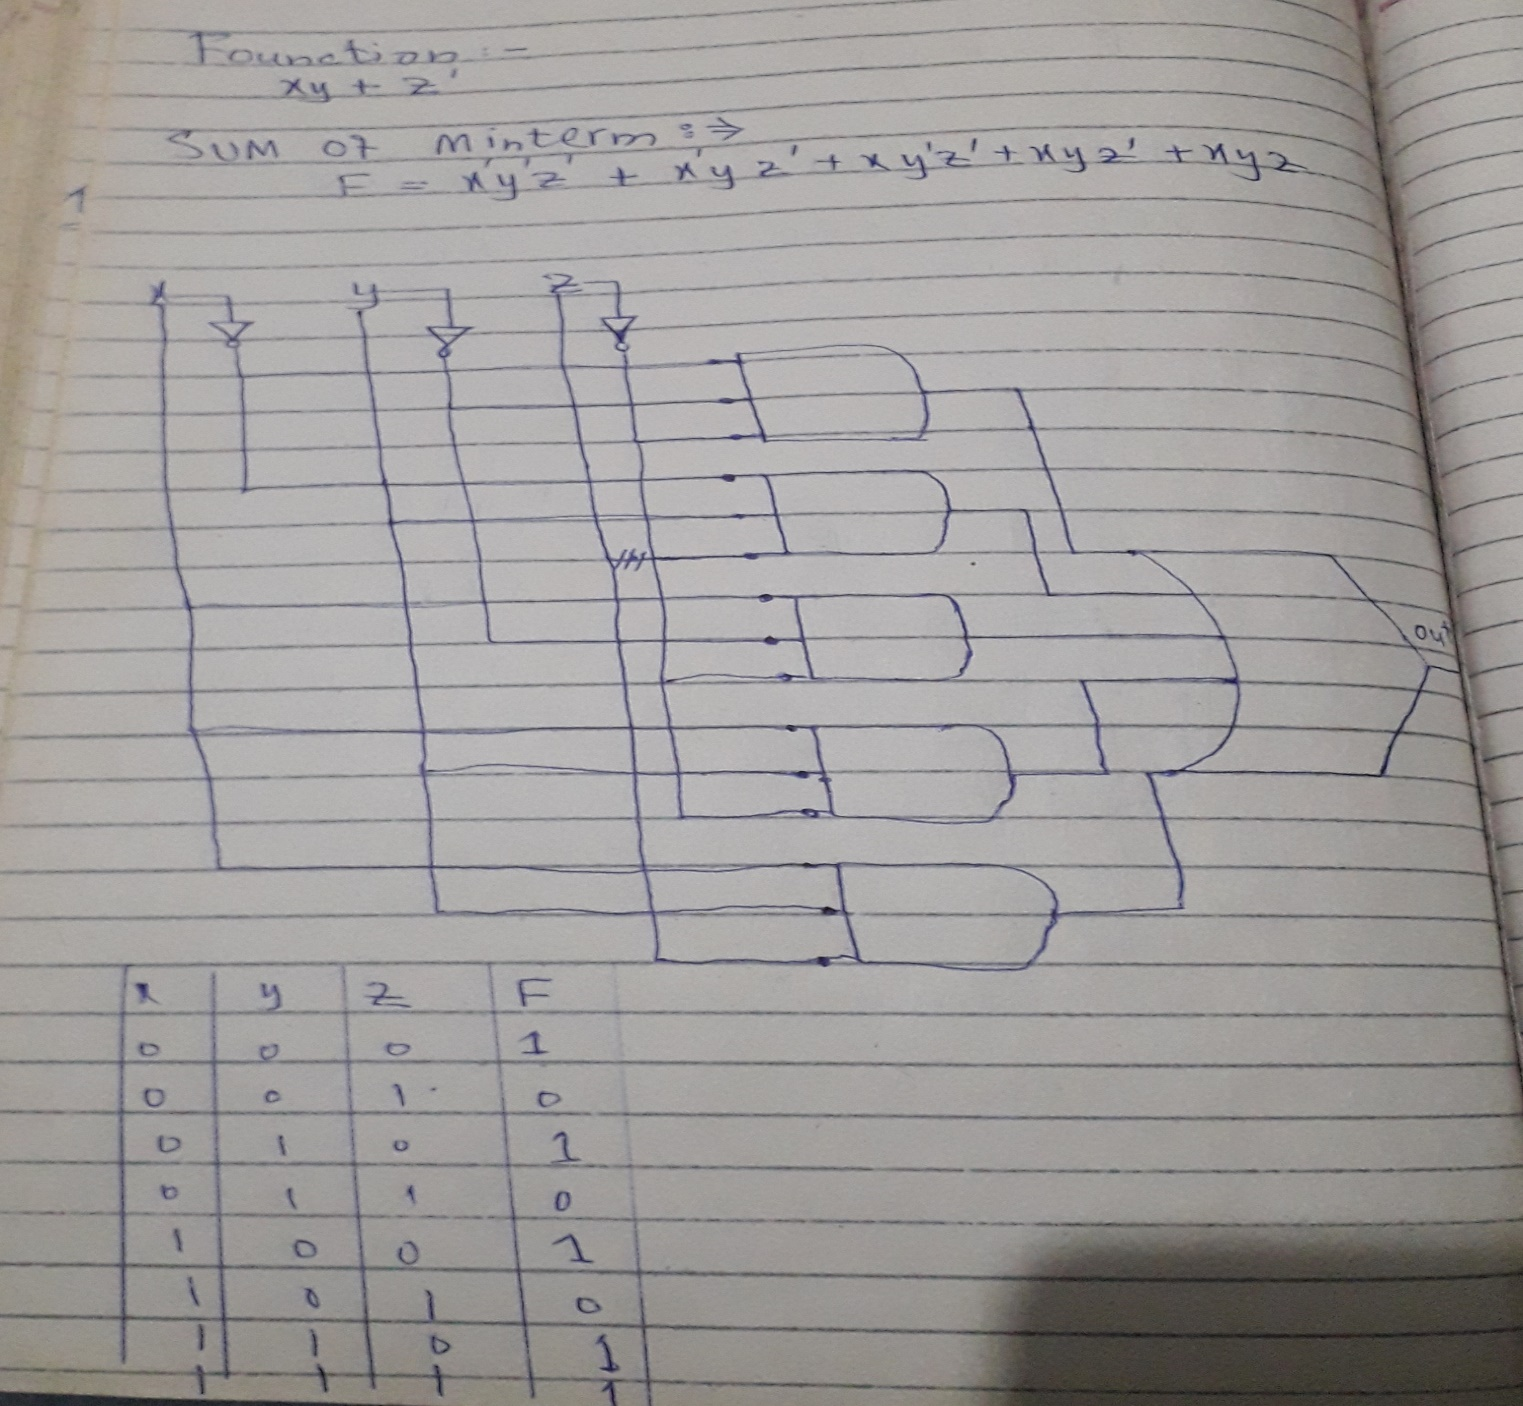 Founction :-
xy + z'
SUM OF Minterm :⇒
F = x'y'z' + x'yz' + xy'z' + xyz' + xyz
1
x y z
out
x y z F
0 0 0 1
0 0 1 0
0 1 0 1
0 1 1 0
1 0 0 1
1 0 1 0
1 1 0 1
1 1 1 1